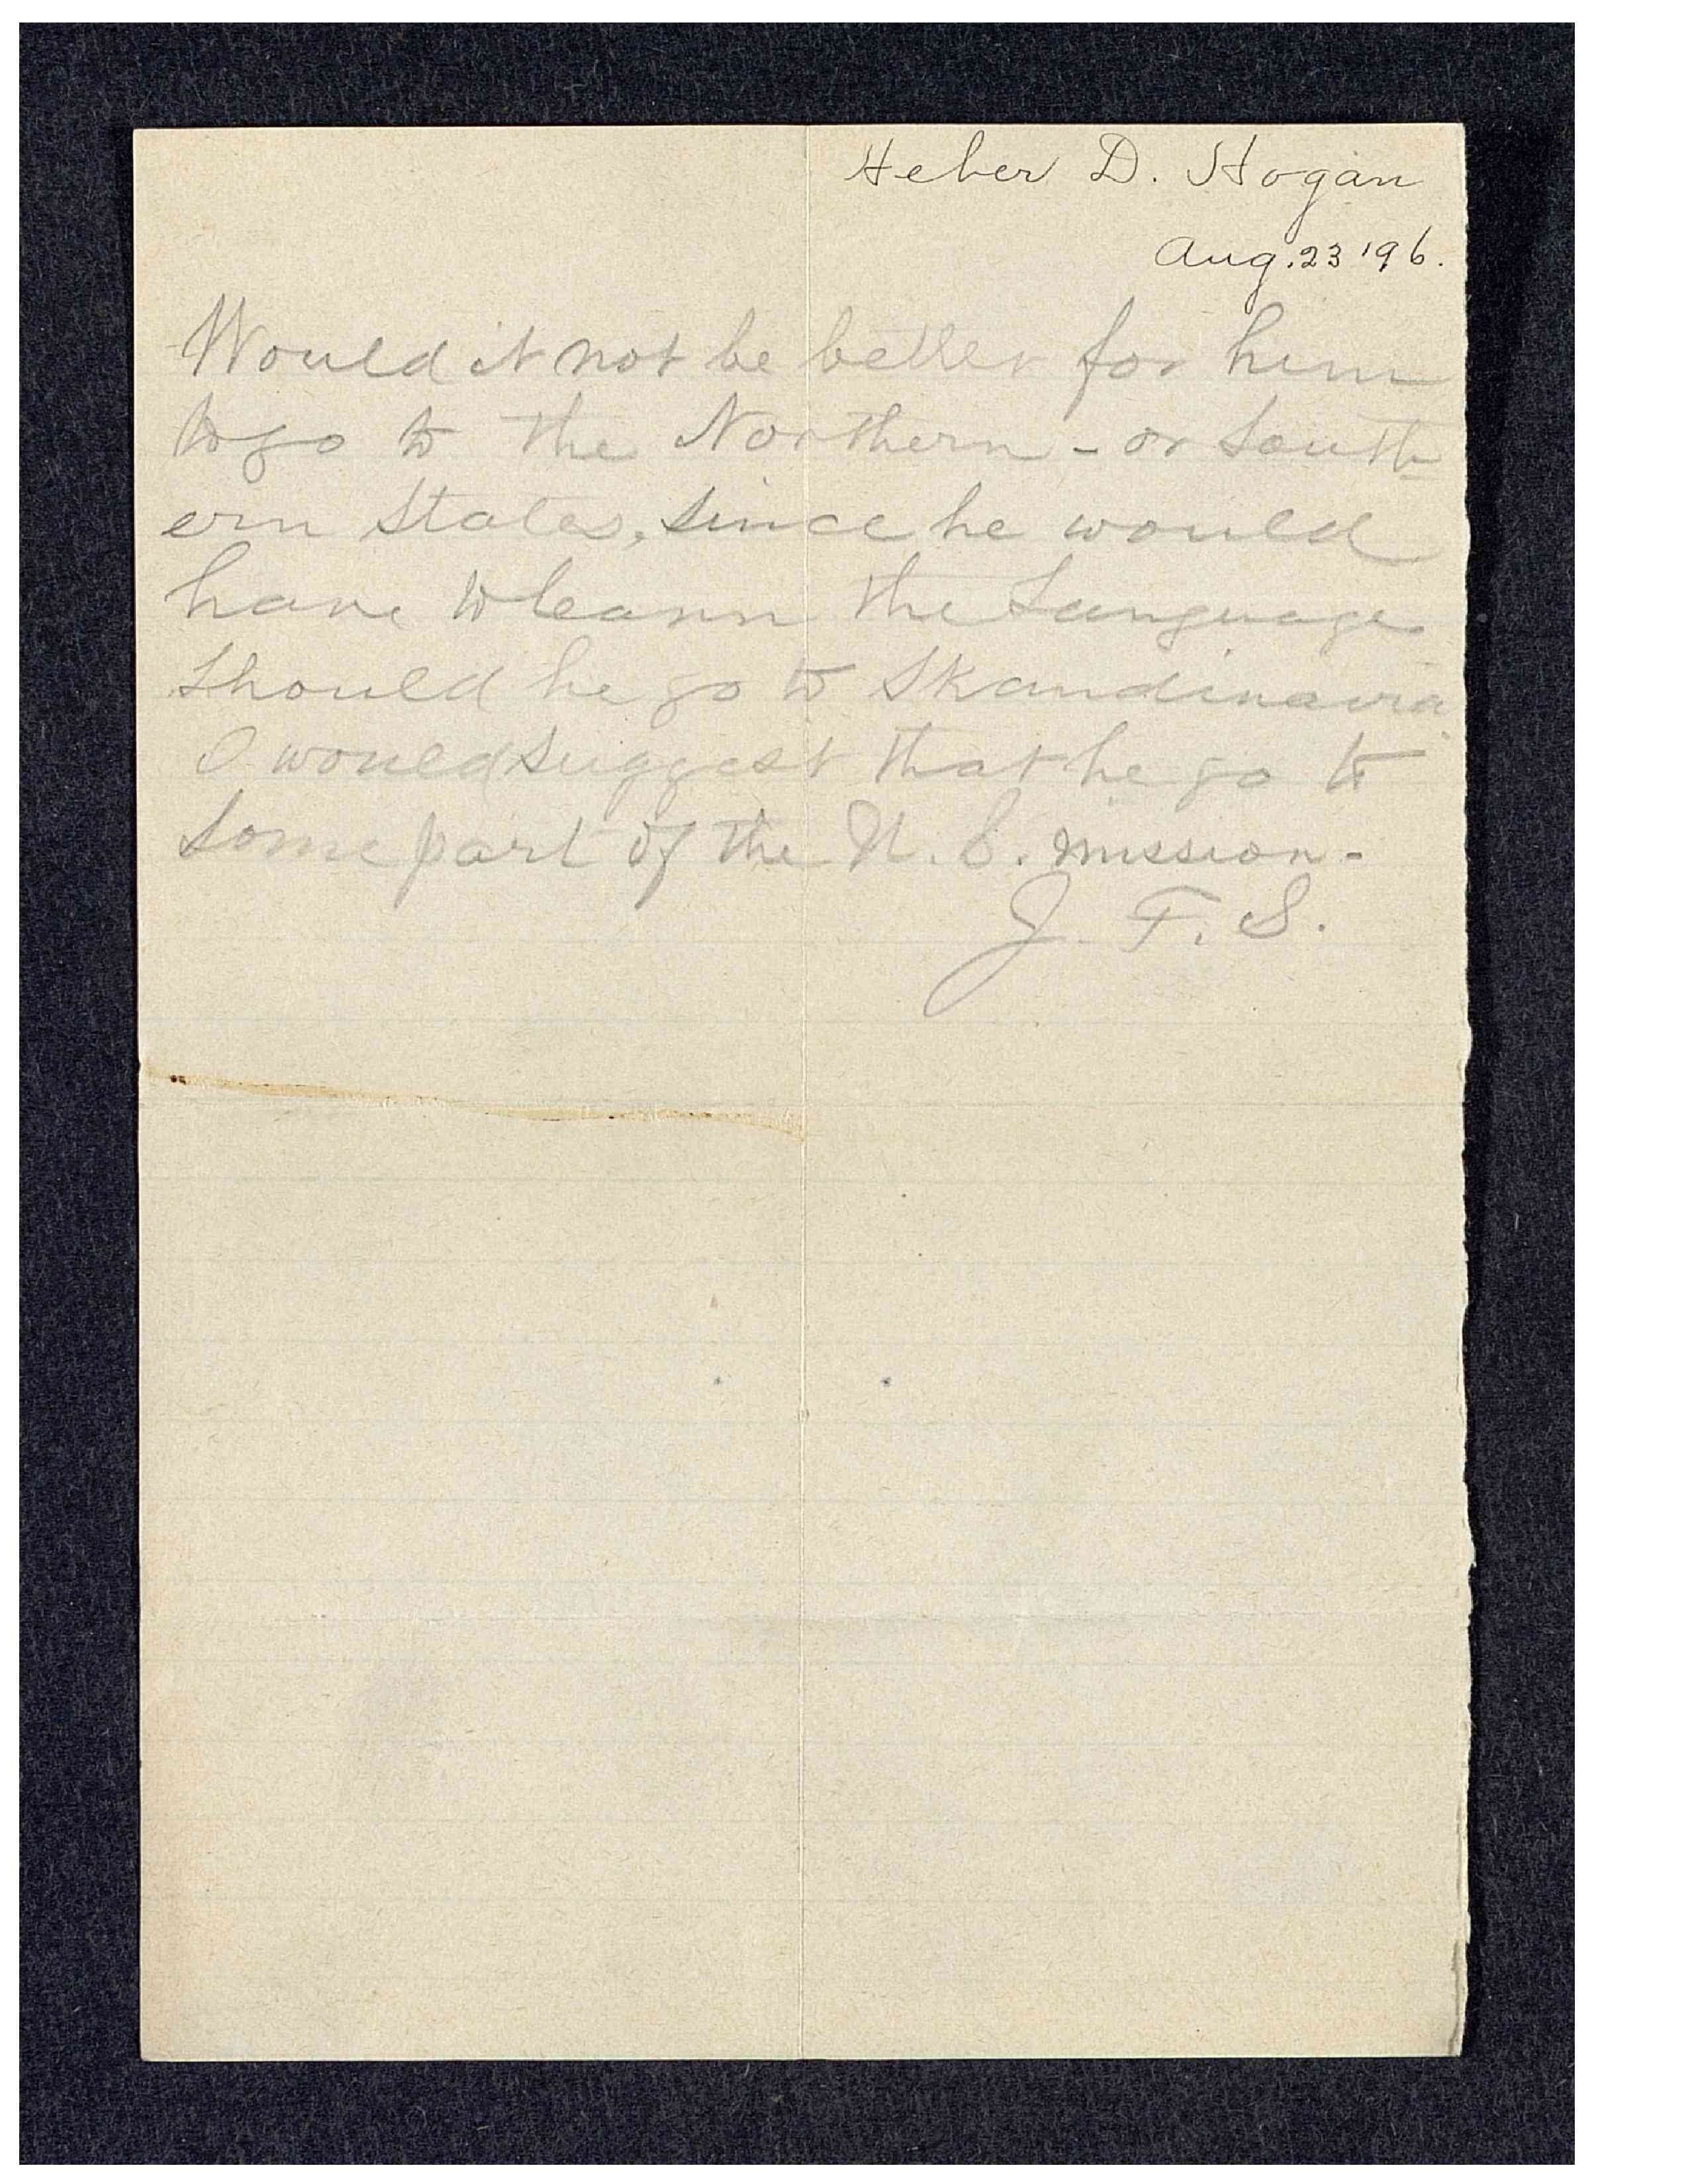 Heber D. Hogan
Aug. 23 '96.
Would it not be better for him
to go to the Northern - or South-
ern States, since he would
have to learn the Language
Should he go to Skandinavia
I would suggest that he go to
Some part of the U. S. mission -
J. F. S.